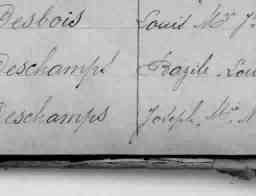 Desbois Louis Mie J
Deschamps Bazile Lou
Deschamps Joseph Mie A